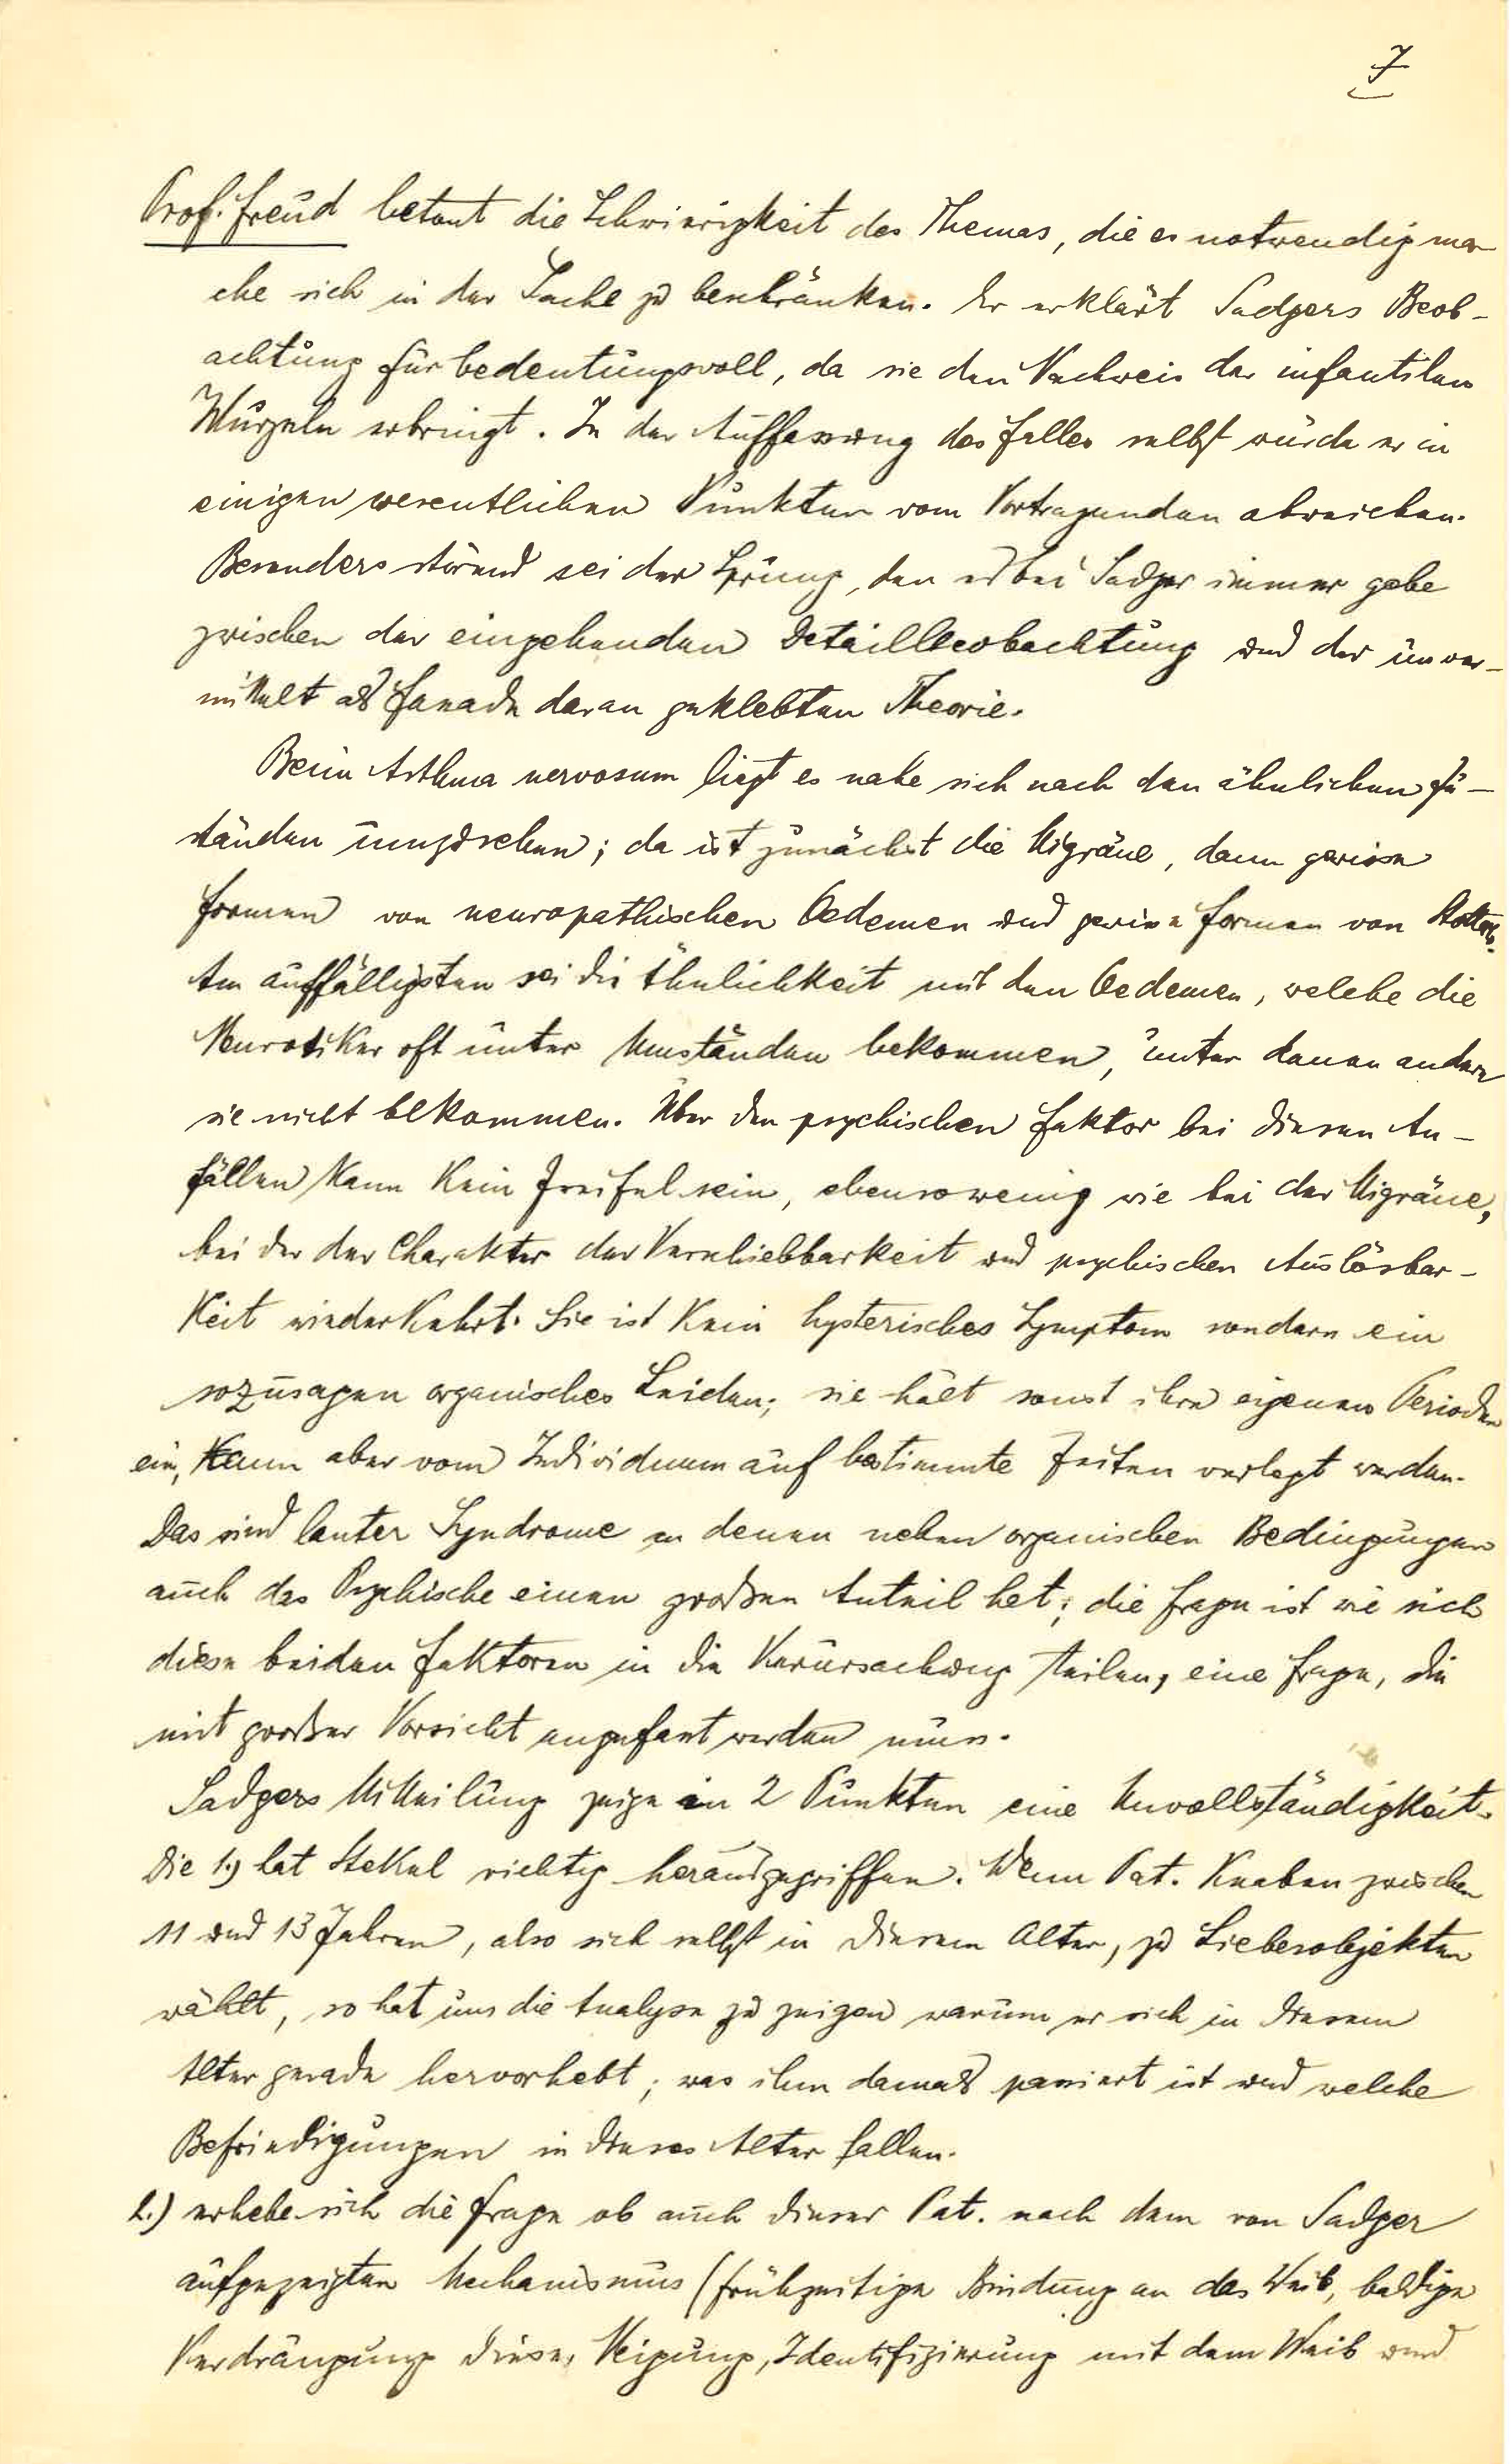 7
Prof. Freud betont die Schwierigkeit des Themas, die es notwendig ma-
che sich in der Sache zu beschränken. Er erklärt Sadgers Beob-
achtung für bedeutungsvoll, da sie den Nachweis der infantilen
Wurzeln erbringt. In der Auffassung des Falles selbst würde er in
einigen wesentlichen Punkten vom Vortragenden abweichen.
Besonders störend sei der Sprung, den es bei Sadger immer gebe
zwischen der eingehenden Detailbeobachtung und der unver-
mittelt als Fassade daran geklebten Theorie.
Beim Asthma nervosum liegt es nahe sich nach den ähnlichen Zu-
ständen umzusehen; da ist zunächst die Migräne, dann gewisse
Formen von neuropathischen Oedemen und gewisse Formen von Stottern.
Am auffälligsten sei die Ähnlichkeit mit den Oedemen, welche die
Neurotiker oft unter Umständen bekommen, unter denen andere
sie nicht bekommen. Über den psychischen Faktor bei diesen An-
fällen kann kein Zweifel sein, ebensowenig wie bei der Migräne,
bei der der Charakter der Verschiebbarkeit und psychischen Auslösbar-
keit wiederkehrt. Sie ist kein hysterisches Symptom sondern ein
sozusagen organisches Leiden; sie hält sonst ihre eigenen Perioden
ein, kann aber vom Individuum auf bestimmte Zeiten verlegt werden.
Das sind lauter Syndrome an denen neben organischen Bedingungen
auch das Psychische einen großen Anteil hat; die Frage ist wie sich
diese beiden Faktoren in die Verursachung teilen, eine Frage, die
mit großer Vorsicht angefasst werden muss.
Sadgers Mitteilung zeige in 2 Punkten eine Unvollständigkeit.
Die 1.) hat Stekel richtig herausgegriffen. Wenn Pat. Knaben zwischen
11 und 13 Jahren, also sich selbst in diesem Alter, zu Liebesobjekten
wählt, so hat uns die Analyse zu zeigen warum er sich in diesem
Alter gerade hervorhebt; was ihm damals passiert ist und welche
Befriedigungen in dieses Alter fallen.
2.) erhebe sich die Frage ob auch dieser Pat. nach dem von Sadger
aufgezeigten Mechanismus (frühzeitige Bindung an das Weib, baldige
Verdrängung dieser Neigung, Identifizierung mit dem Weib und